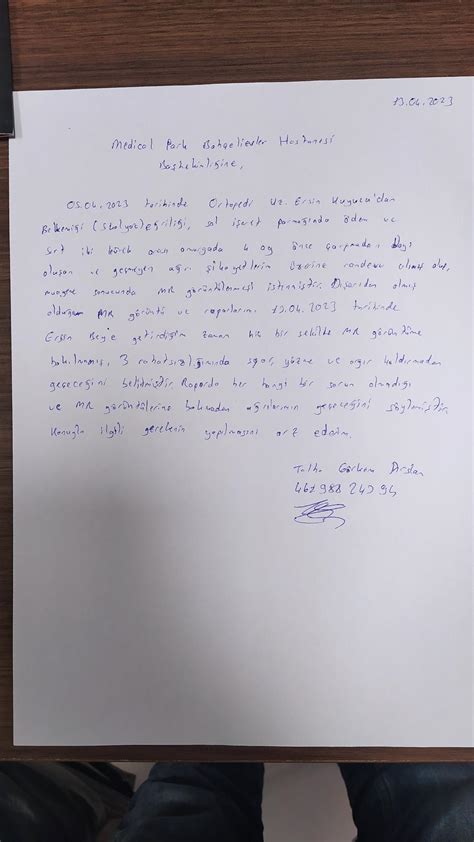 13.04.2023
Medical Park Bahçelievler Hastanesi
Başhekimliğine,
05.04.2023 tarihinde Ortopedi Uz. Ersin Kuyucu'dan
Belkemiği (skolyoz) eğriliği, sol işaret parmağında ödem ve
Sırt iki kürek arası omurgada 4 ay önce çarpmadan
oluşan ve geçmeyen ağrı şikayetlerim üzerine randevu almış olup,
muayene sonucunda MR görüntülenmesi istenmiştir. Dışarıdan almış
olduğum MR görüntü ve raporlarımı 13.04.2023 tarihinde
Ersin Bey'e getirdiğim zaman hiç bir şekilde MR görüntüme
bakılmamış, 3 rahatsızlığımında spor, yüzme ve ağır kaldırmadan
geçeceğini belirtmiştir. Raporda her hangi bir sorun olmadığı
ve MR görüntülerine bakmadan ağrılarımın geçeceğini söylemiştir.
Konuyla ilgili gereğinin yapılmasını arz ederim.
Talha Görkem Arslan